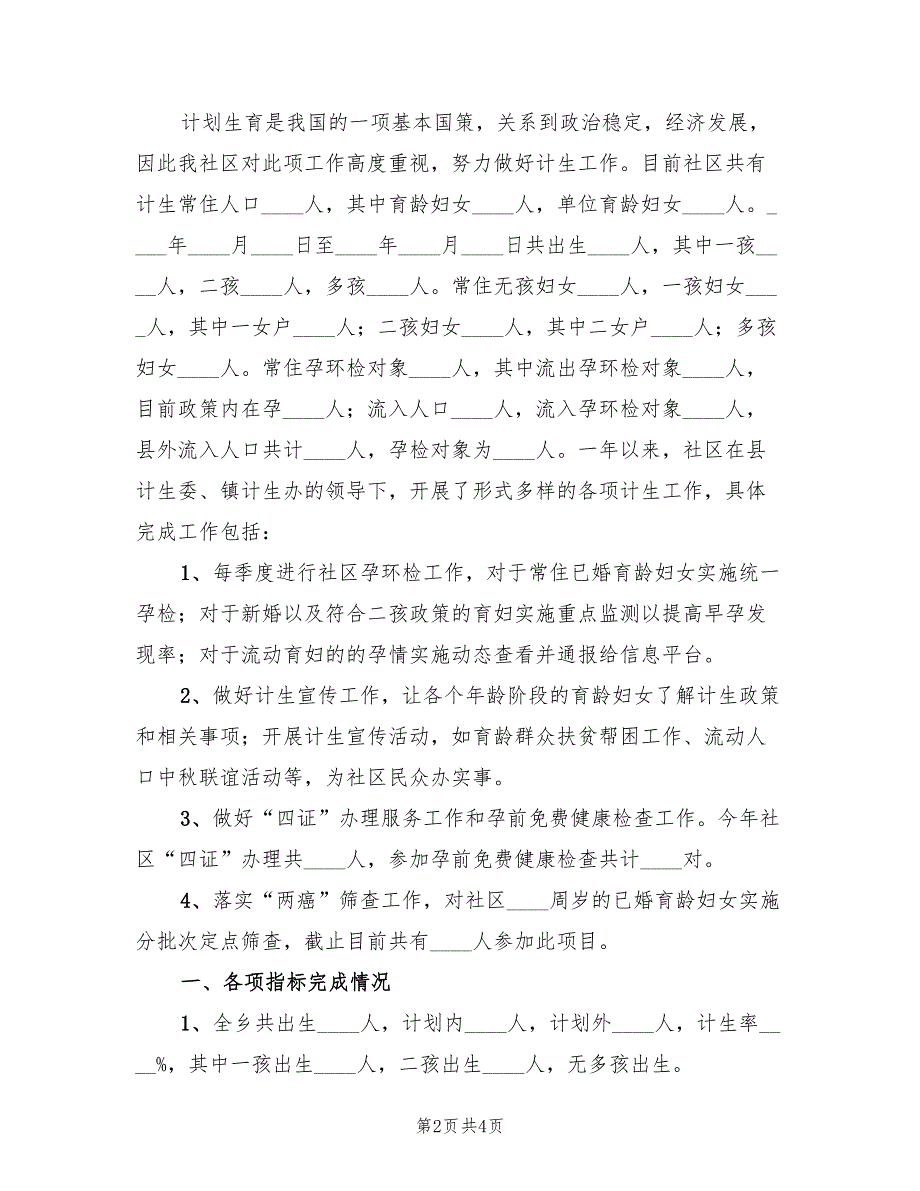 计划生育是我国的一项基本国策，关系到政治稳定，经济发展，
因此我社区对此项工作高度重视，努力做好计生工作。目前社区共有
计生常住人口____人，其中育龄妇女____人，单位育龄妇女____人。_
___年____月____日至____年____月____日共出生____人，其中一孩__
__人，二孩____人，多孩____人。常住无孩妇女____人，一孩妇女___
_人，其中一女户____人；二孩妇女____人，其中二女户____人；多孩
妇女____人。常住孕环检对象____人，其中流出孕环检对象____人，
目前政策内在孕____人；流入人口____人，流入孕环检对象____人，
县外流入人口共计____人，孕检对象为____人。一年以来，社区在县
计生委、镇计生办的领导下，开展了形式多样的各项计生工作，具体
完成工作包括：
1、每季度进行社区孕环检工作，对于常住已婚育龄妇女实施统一
孕检；对于新婚以及符合二孩政策的育妇实施重点监测以提高早孕发
现率；对于流动育妇的的孕情实施动态查看并通报给信息平台。
2、做好计生宣传工作，让各个年龄阶段的育龄妇女了解计生政策
和相关事项；开展计生宣传活动，如育龄群众扶贫帮困工作、流动人
口中秋联谊活动等，为社区民众办实事。
3、做好“四证”办理服务工作和孕前免费健康检查工作。今年社
区“四证”办理共____人，参加孕前免费健康检查共计____对。
4、落实“两癌”筛查工作，对社区____周岁的已婚育龄妇女实施
分批次定点筛查，截止目前共有____人参加此项目。
一、各项指标完成情况
1、全乡共出生____人，计划内____人，计划外____人，计生率__
__%，其中一孩出生____人，二孩出生____人，无多孩出生。
第2页共4页